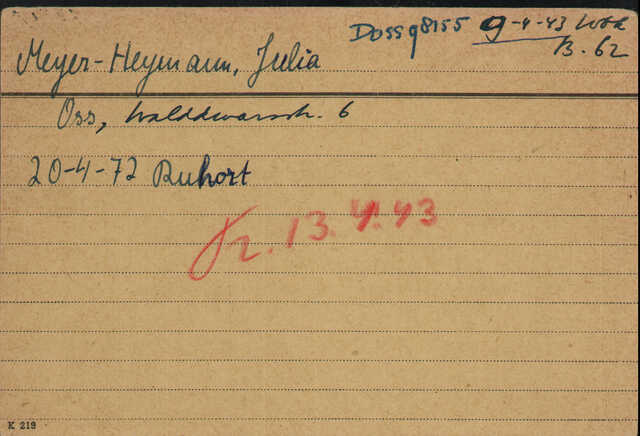 Doss 98155 9-4-43 Wbk
B. 62
Meyer-Heymann, Julia
Oss, Walddwarsstr. 6
20-4-72 Ruhort
Tr. 13.4.43
K 219